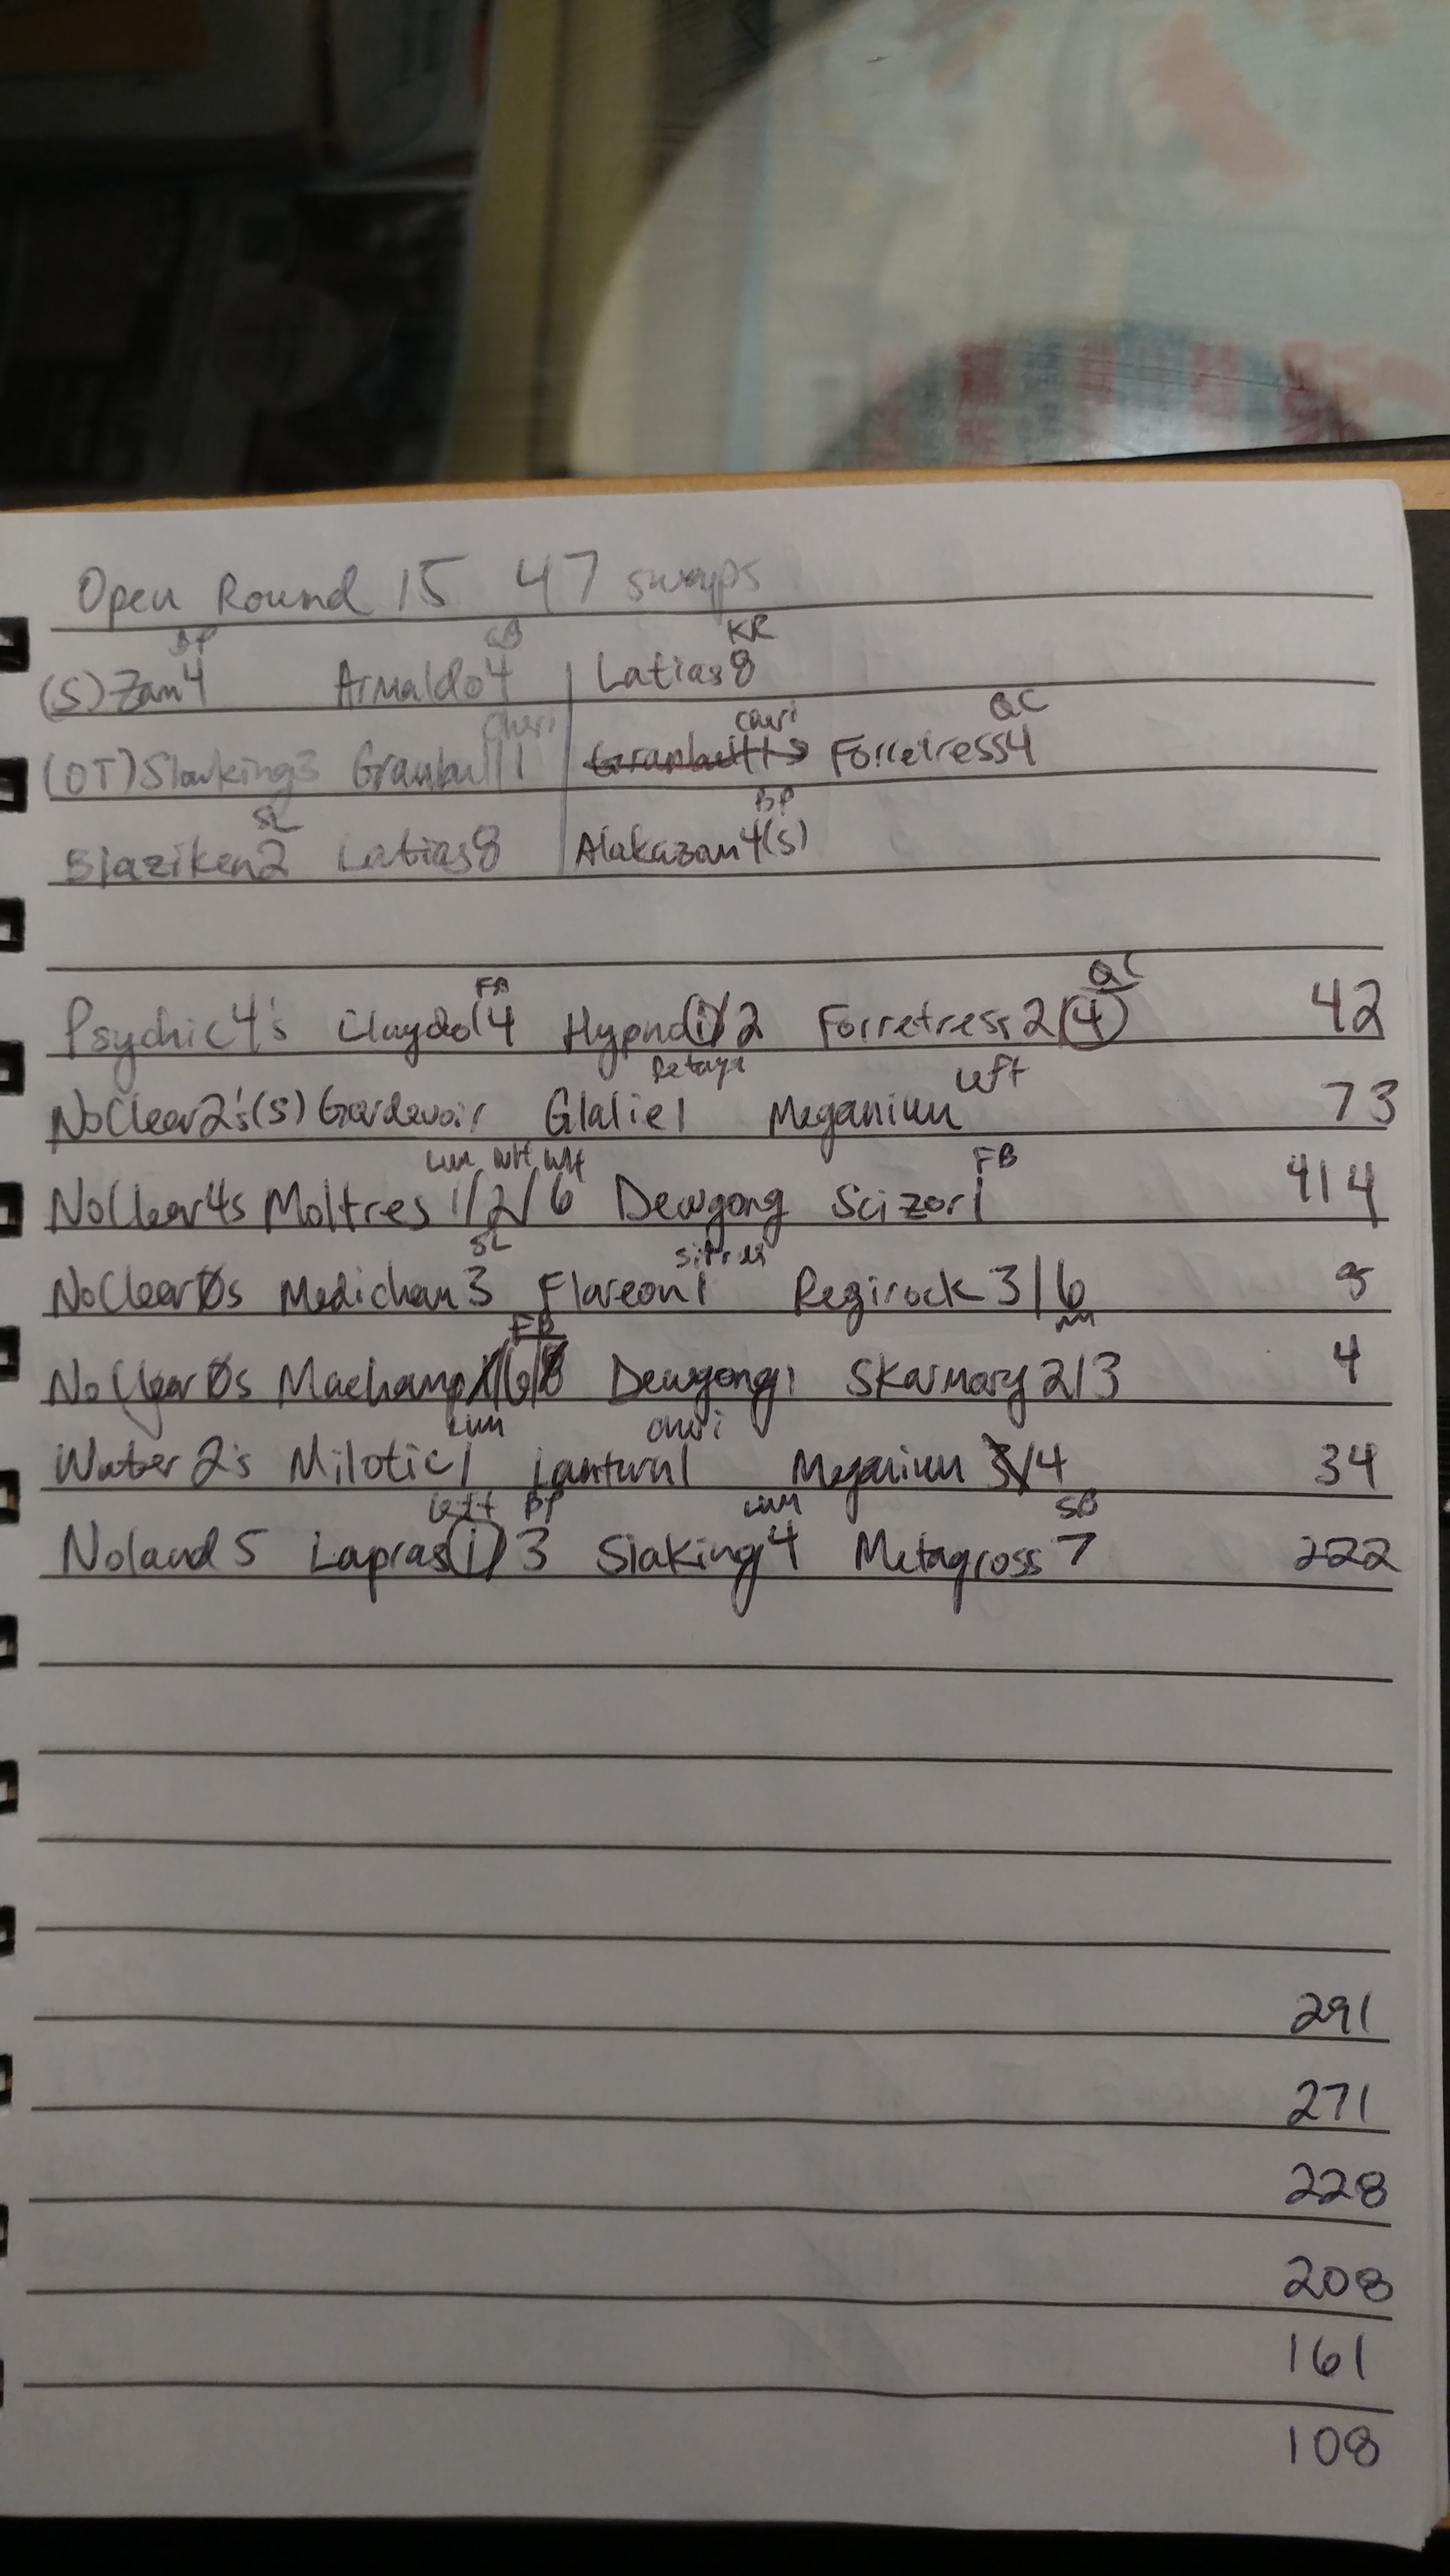 Open Round 15 47 swaps
BP QB KR
(S) Zam4 Armaldo4 Latias8
Cheri Cheri QC
(OT) Slowking3 Granbull1 Granbull1 → Forretress4
SL BP
Blaziken2 Latias8 Alakazam4(S)
FB QC
Psychic4's Claydol4 Hypno(1)/2 Forretress2/(4) 42
Petaya Left
NoClear2's(S) Gardevoir Glalie1 Meganium 73
Lum WH WH FB
NoClear4s Moltres 1/2/6 Dewgong Scizor1 414
SL Sitrus
NoClear0s Medicham3 Flareon1 Regirock3/6 5
FB
NoClear0s Machamp1/6/8 Dewgong1 Skarmory2/3 4
Lum Cheri
Water2's Milotic1 Lanturn1 Meganium 3/4 34
Left BP Lum SB
Noland5 Lapras(1)/3 Slaking4 Metagross7 222
291
271
228
208
161
108